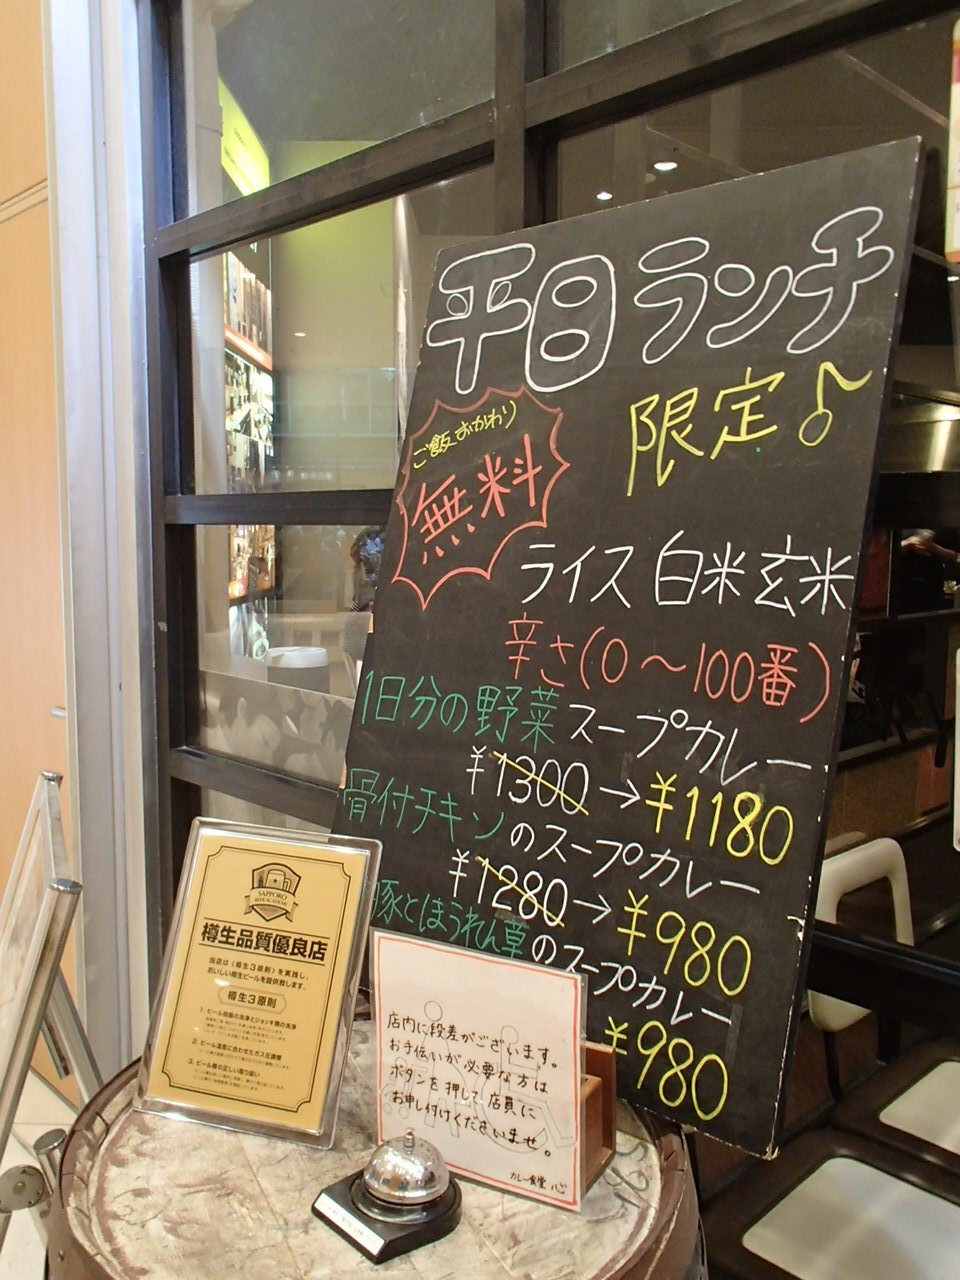 平日ランチ
限定♪
ご飯おかわり
無料
ライス 白米 玄米
辛さ(0〜100番)
1日分の野菜スープカレー
¥1300→¥1180
骨付チキンのスープカレー
¥1280→¥980
豚とほうれん草のスープカレー
¥980
SAPPORO
BEER ACADEMY
樽生品質優良店
当店は〈樽生3原則〉を実践し、
おいしい樽生ビールを提供致します。
樽生3原則
1. ビール回路の洗浄とジョッキ類の洗浄
2. ビール温度に合わせたガス圧調整
3. ビール樽の正しい取り扱い
店内に段差がございます。
お手伝いが必要な方は
ボタンを押して店員に
お申し付けくださいませ。
カレー食堂 心